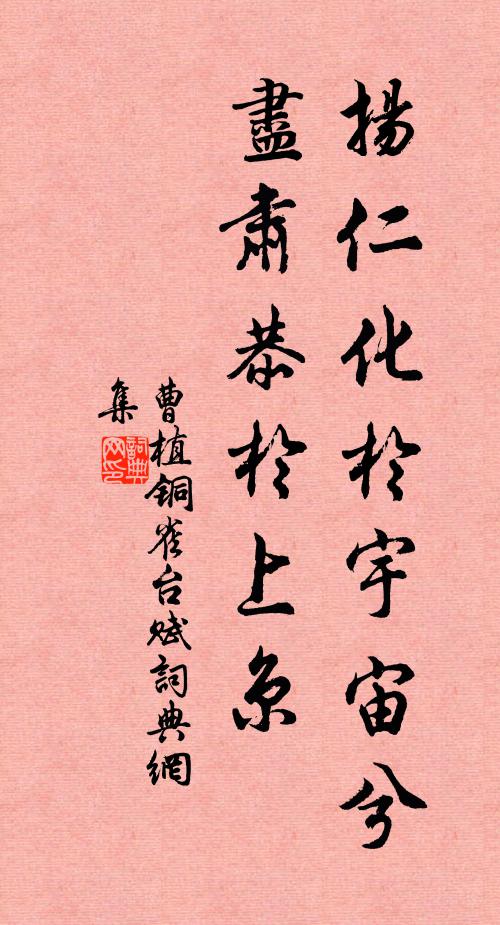 揚仁化於宇宙兮
盡肅恭於上京
曹植銅雀台賦詞典網
集
詞典网印